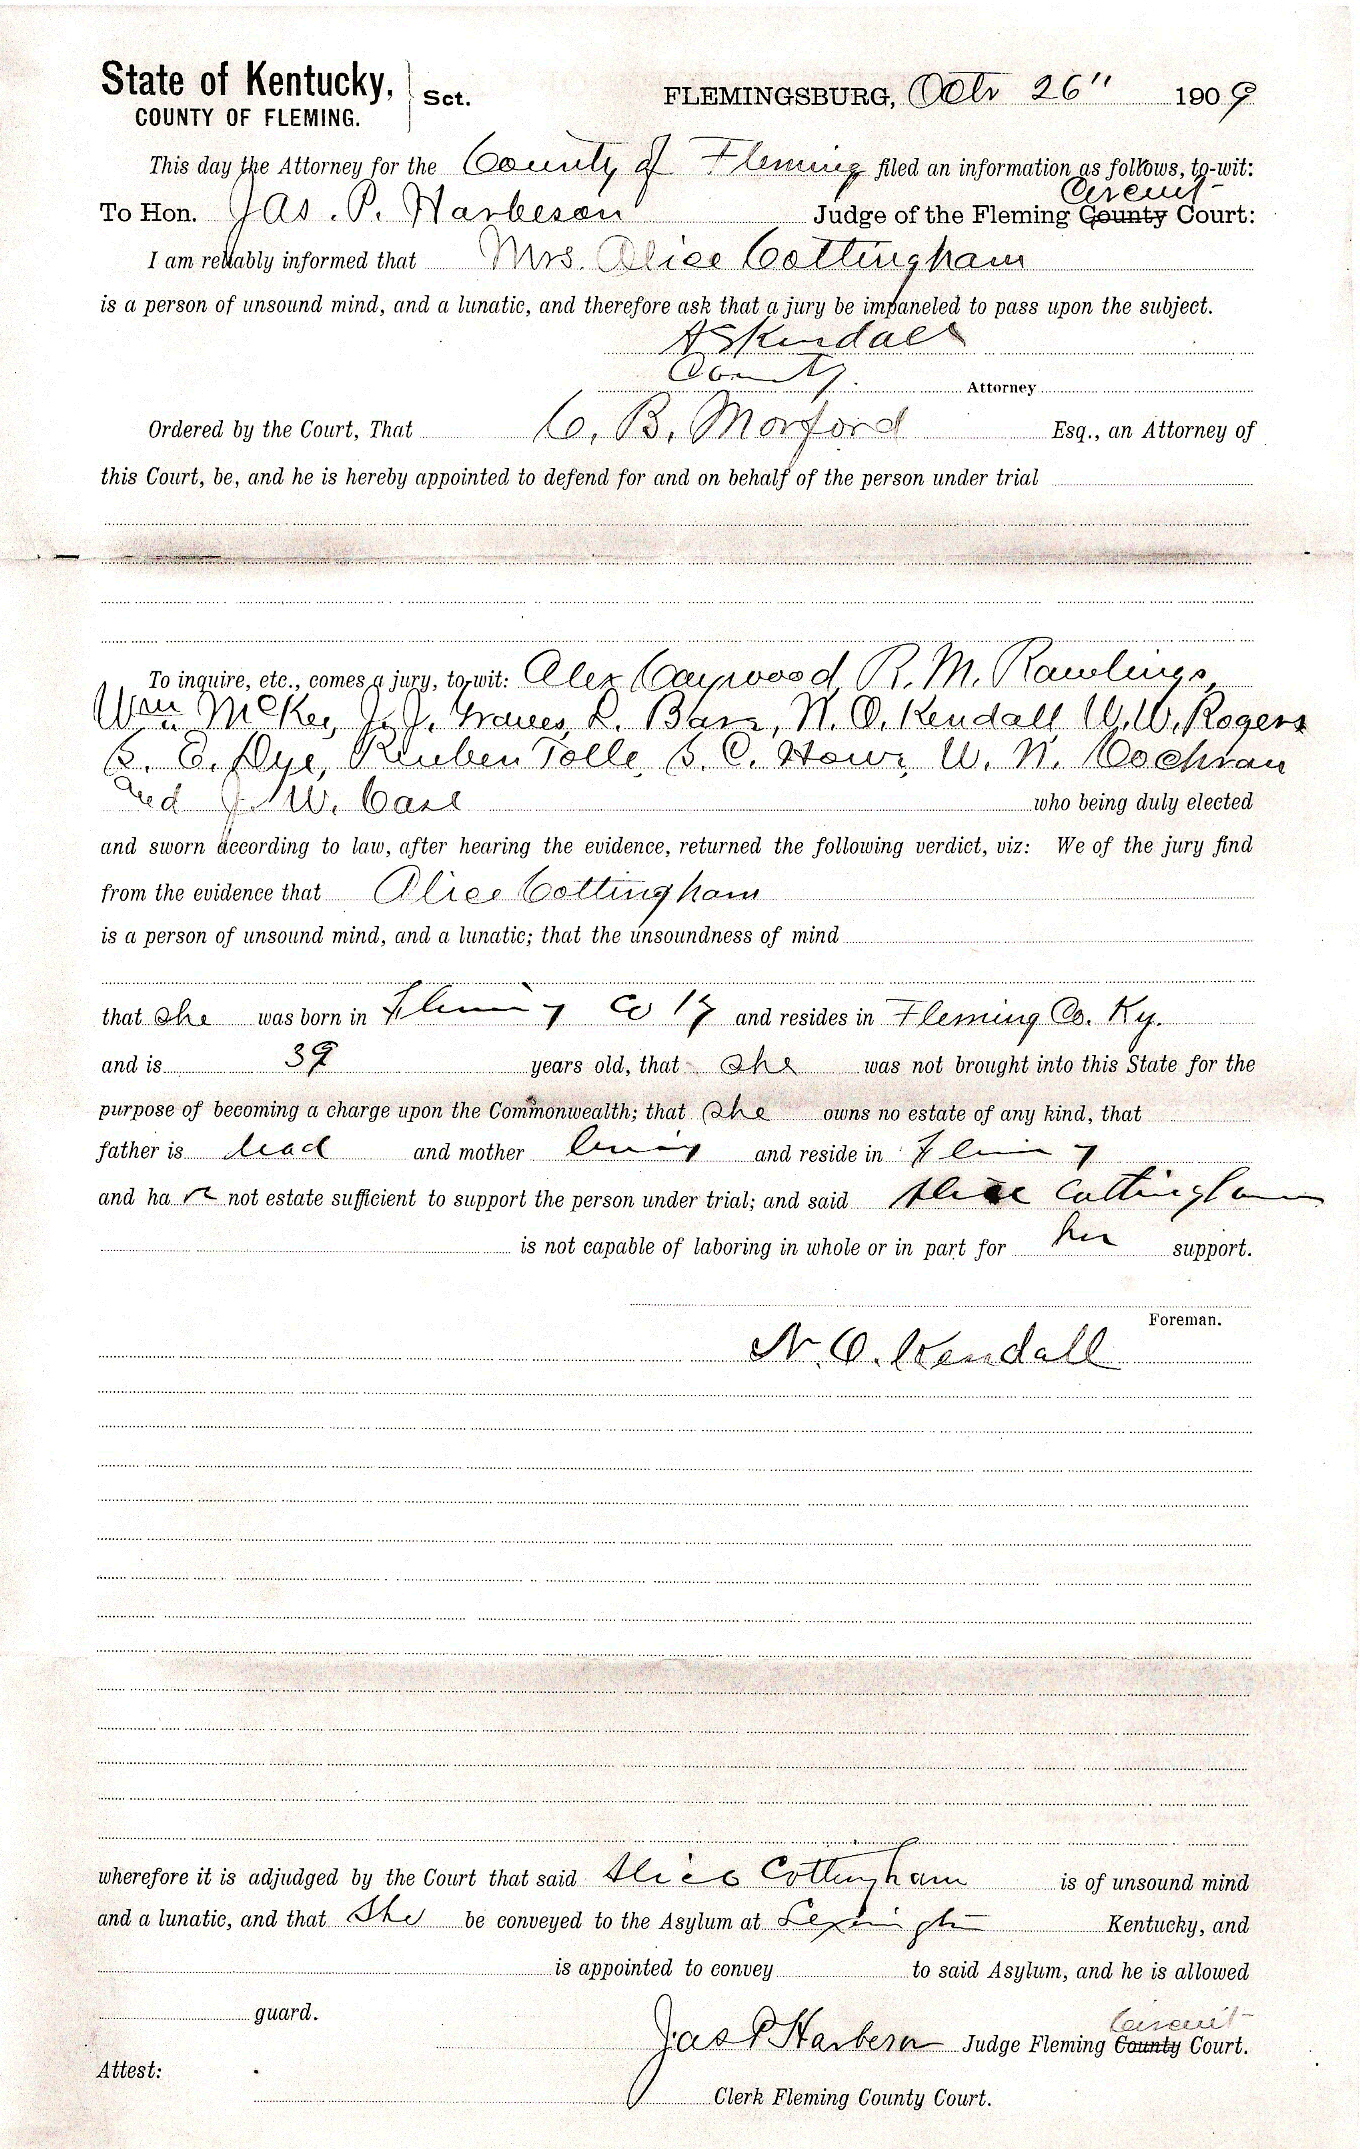 State of Kentucky,
COUNTY OF FLEMING.
Sct.
FLEMINGSBURG, Octr 26" 1909
This day the Attorney for the County of Fleming filed an information as follows, to-wit:
Circuit
To Hon. Jas. P. Harbeson Judge of the Fleming County Court:
I am reliably informed that Mrs. Alice Cottingham
is a person of unsound mind, and a lunatic, and therefore ask that a jury be impaneled to pass upon the subject.
Kendall
County
Attorney
Ordered by the Court, That C. B. Morford Esq., an Attorney of
this Court, be, and he is hereby appointed to defend for and on behalf of the person under trial
To inquire, etc., comes a jury, to-wit: Alex Caywood, R. M. Rawlings,
Wm McKee, J. J. Graves, L. Barr, N. O. Kendall W. W. Rogers
S. E. Dye, Reuben Tolle, S. C. Howe, W. N. Cochran
and J. W. Case who being duly elected
and sworn according to law, after hearing the evidence, returned the following verdict, viz: We of the jury find
from the evidence that Alice Cottingham
is a person of unsound mind, and a lunatic; that the unsoundness of mind
that she was born in Fleming Co Ky and resides in Fleming Co. Ky.
and is 39 years old, that she was not brought into this State for the
purpose of becoming a charge upon the Commonwealth; that she owns no estate of any kind, that
father is dead and mother living and reside in Fleming
and ha ve not estate sufficient to support the person under trial; and said Alice Cottingham
is not capable of laboring in whole or in part for her support.
Foreman.
N. O. Kendall
wherefore it is adjudged by the Court that said Alice Cottingham is of unsound mind
and a lunatic, and that She be conveyed to the Asylum at Lexington Kentucky, and
is appointed to convey to said Asylum, and he is allowed
guard.
Circuit
Jas P Harbeson Judge Fleming County Court.
Attest:
Clerk Fleming County Court.